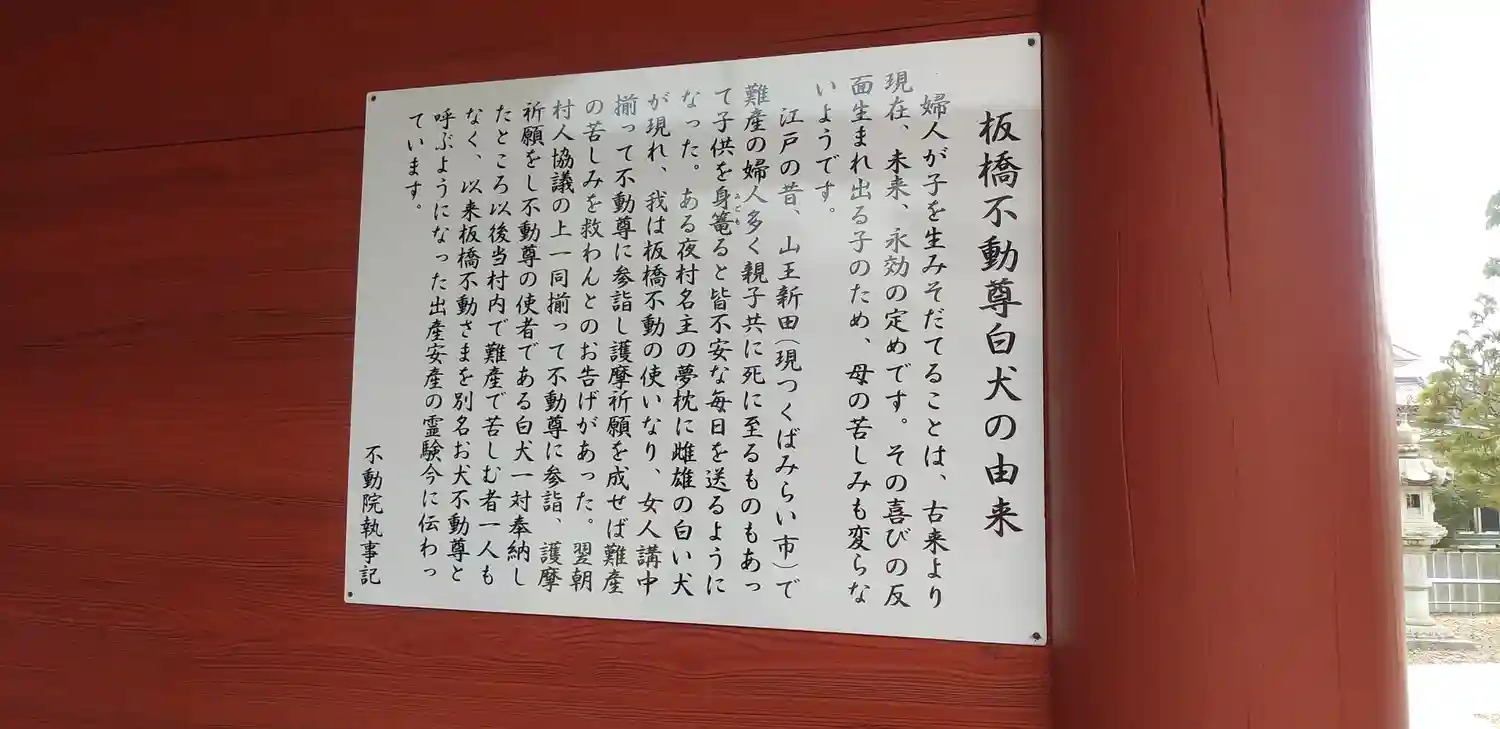 板橋不動尊白犬の由来
婦人が子を生みそだてることは、古来より
現在、未来、永効の定めです。その喜びの反
面生まれ出る子のため、母の苦しみも変らな
いようです。
江戸の昔、山王新田（現つくばみらい市）で
難産の婦人多く親子共に死に至るものもあっ
て子供を身篭ると皆不安な毎日を送るように
なった。ある夜村名主の夢枕に雌雄の白い犬
が現れ、我は板橋不動の使いなり、女人講中
揃って不動尊に参詣し護摩祈願を成せば難産
の苦しみを救わんとのお告げがあった。翌朝
村人協議の上一同揃って不動尊に参詣、護摩
祈願をし不動尊の使者である白犬一対奉納し
たところ以後当村内で難産で苦しむ者一人も
なく、以来板橋不動さまを別名お犬不動尊と
呼ぶようになった出産安産の霊験今に伝わっ
ています。
不動院執事記